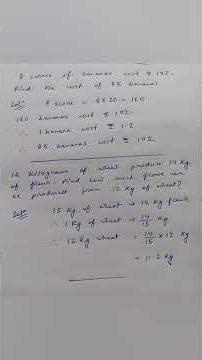 8 score of bananas cost ₹ 192.
Find the cost of 85 bananas
Solⁿ 8 score = 8×20 = 160
160 bananas cost ₹ 192.
∴ 1 banana cost ₹ 1.2
∴ 85 bananas cost ₹ 102
kilograms of wheat produce 14 kg
of flour. Find how much flour can
be produced from 12 kg of wheat?
Solⁿ 15 kg of wheat → 14 kg flour
∴ 1 kg of wheat → 14/15 kg
∴ 12 kg wheat = 14/15 × 12 kg
= 11.2 kg